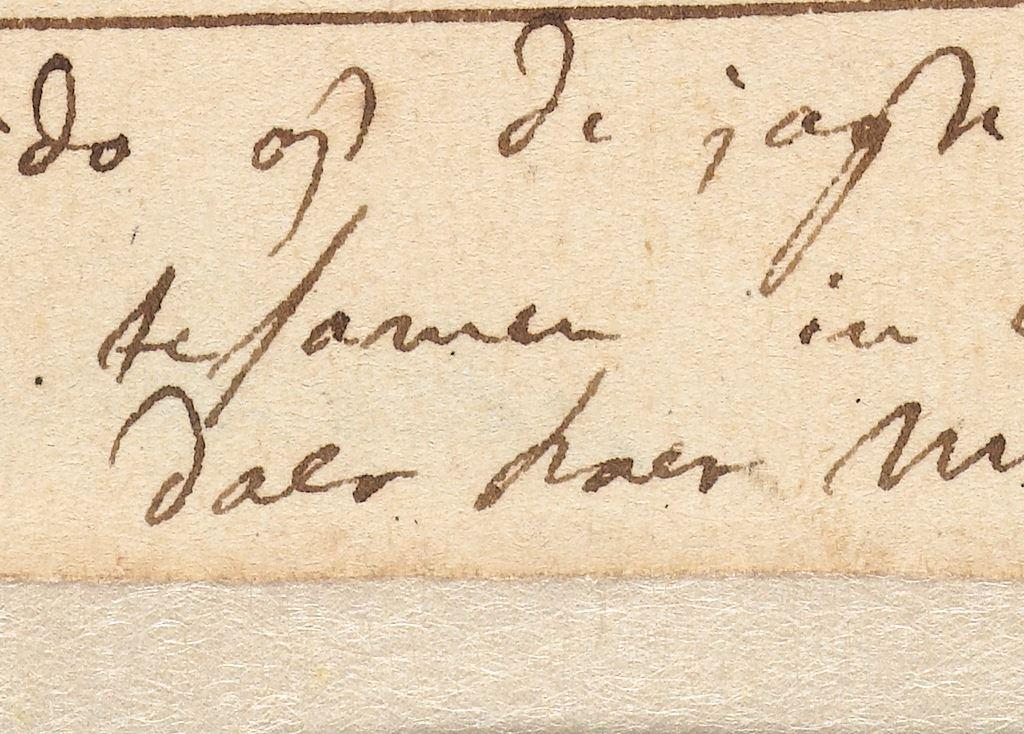 ido op de jagte
te samen in
daer haer